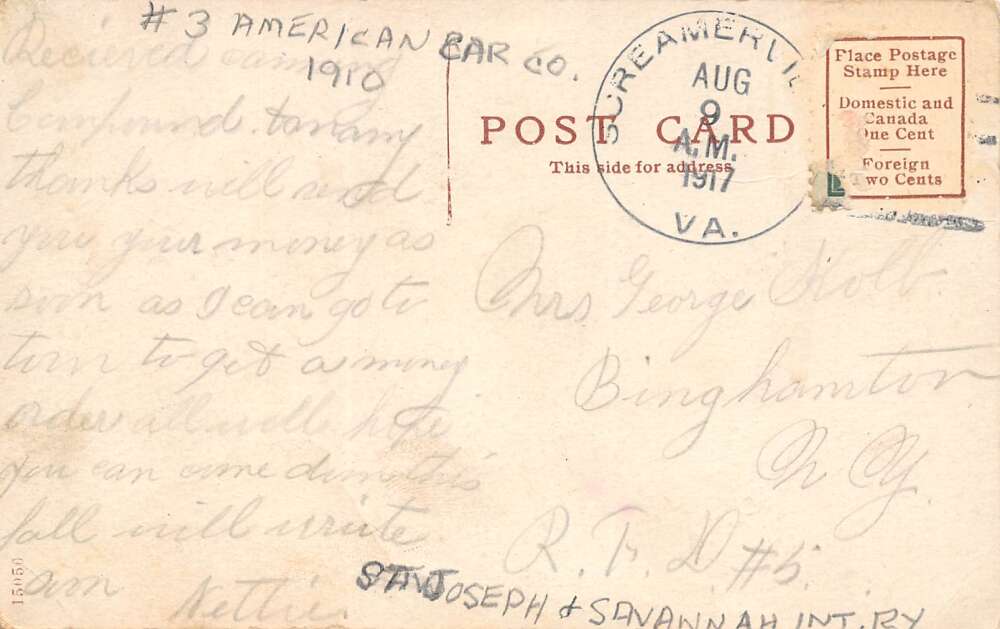 # 3 AMERICAN CAR CO.
1910
Recieved canning
Compound. to many
thanks will send
you your money as
soon as I can go to
town to get a money
order all well hope
you can come down this
fall will write
am Nettie.
15050
POST CARD
This side for address
AUG
9
A.M.
1917
VA.
Place Postage
Stamp Here
Domestic and
Canada
One Cent
Foreign
Two Cents
Mrs George Kolb.
Binghamton
N Y.
R. F. D #5.
ST. JOSEPH & SAVANNAH INT. RY